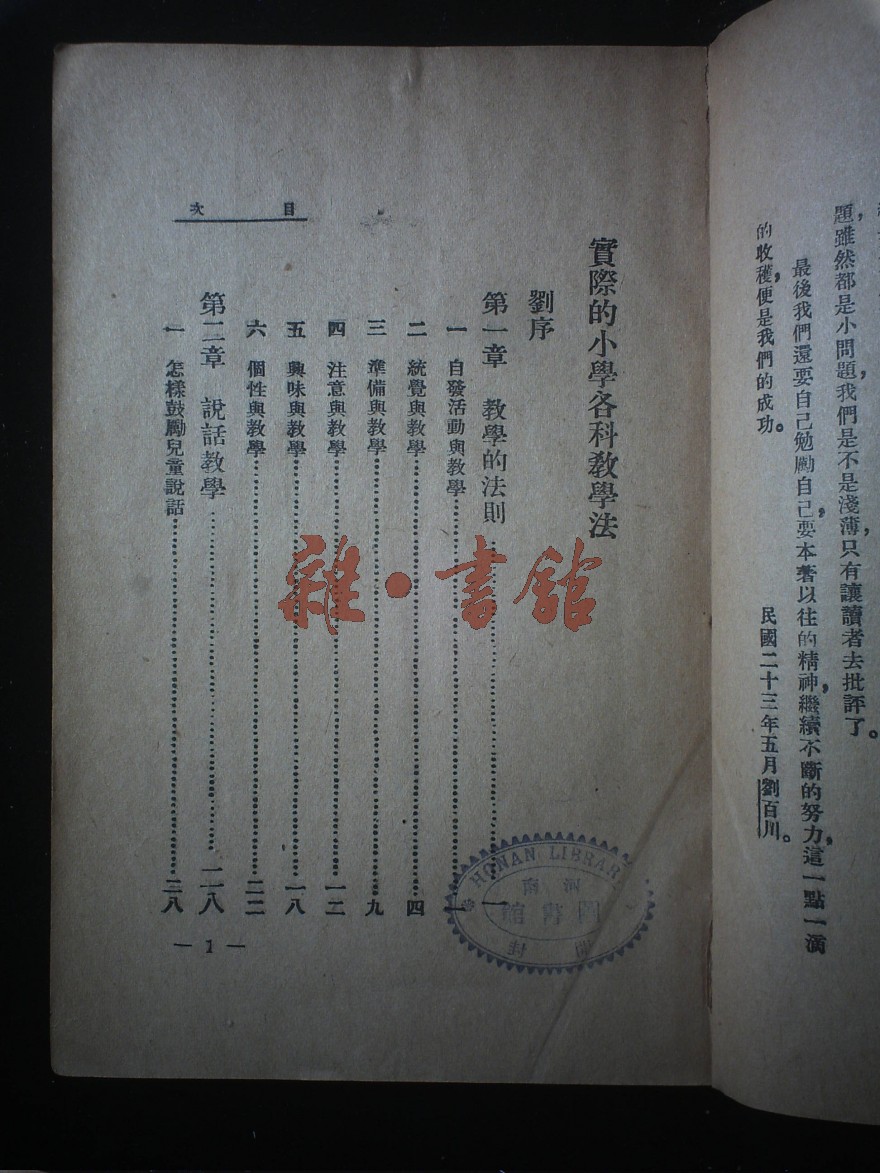 題,雖然都是小問題,我們是不是淺薄,只有讓讀者去批評了。
最後我們還要自己勉勵自己,要本著以往的精神,繼續不斷的努力,這一點一滴
的收穫,便是我們的成功。
民國二十三年五月劉百川。
目次
實際的小學各科教學法
劉序
第一章 教學的法則……一
一 自發活動與教學……一
二 統覺與教學……四
三 準備與教學……九
四 注意與教學……一二
五 興味與教學……一八
六 個性與教學……二二
第二章 說話教學……二八
一 怎樣鼓勵兒童說話……二八
— 1 —
雜·書館
HONAN LIBRARY
河南
圖書館
開封